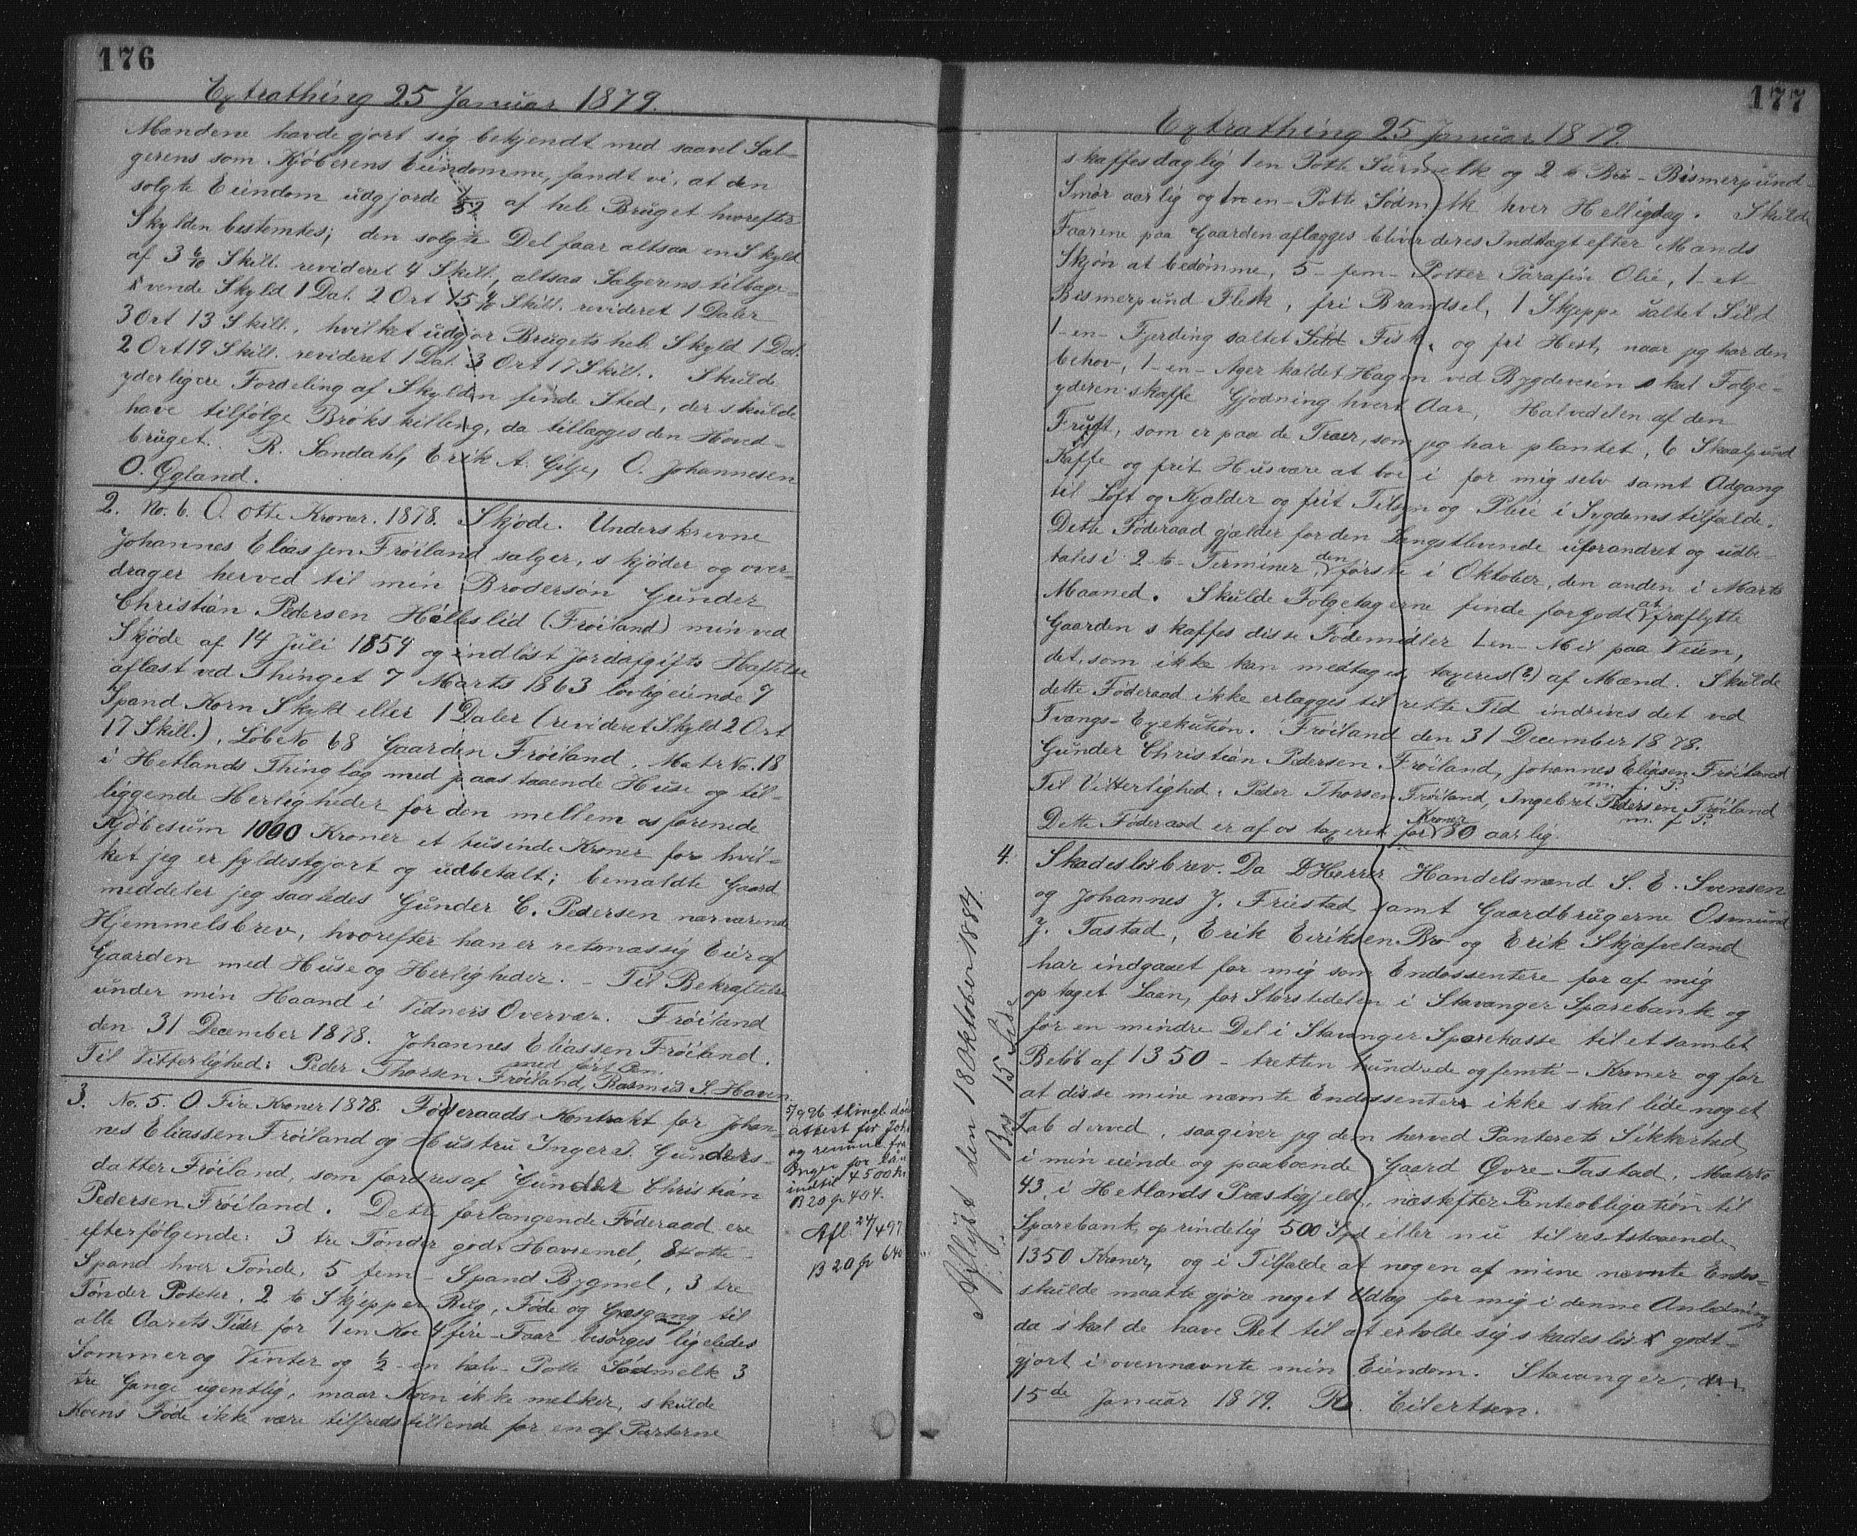 176
Extrathing 25 Januar 1879.
Mændene havde gjort sig bekjendt med saavel Sæl-
gerens som Kjøberens Eiendomme, fandt vi, at den
solgte Eiendom udgjorde 1/52 af hele Bruget hvorefter
Skylden bestemtes; den solgte Del faar altsaa en Skyld
af 3 6/10 Skill. revideret 4 Skill., altsaa Sælgerens tilbage-
værende Skyld 1 Dal. 2 Ort 15 4/10 Skill. revideret 1 Daler
3 Ort 13 Skill., hvilket udgjør Brugets hele Skyld 1 Dal.
2 Ort 19 Skill. revideret 1 Dal. 3 Ort 17 Skill. Skulde
yderligere Fordeling af Skylden finde Sted, der skulde
have tilfølge Brøkskilling, da tillægges den Hoved-
bruget. R. Sandahl, Erik A. Gilje, O. Johannesen
O. Øgland.
2. No. 6. O. otte Kroner. 1878. Skjøde. Underskrevne
Johannes Eliassen Frøiland sælger, skjøder og over-
drager herved til min Brodersøn Gunder
Christian Pedersen Holleslid (Frøiland) min ved
Skjøde af 14 Juli 1854 og indløst Jordafgifts Hæftelse
aflæst ved Thinget 7 Marts 1863 lovlig eiende 7
Spand Korn Skyld eller 1 Daler (revideret Skyld 2 Ort
17 Skill.), Løbe No 68 Gaarden Frøiland, Matr No. 18
i Hetlands Thinglag med paastaaende Huse og til-
liggende Herligheder for den mellem os forenede
Kjøbesum 1000 Kroner et tusinde Kroner for hvil-
ket jeg er fyldestgjort og udbetalt; bemældte Gaard
meddeler jeg saaledes Gunder C. Pedersen nærværende
Hjemmelsbrev, hvorefter han er retsmæssig Eier af
Gaarden med Huse og Herligheder. – Til Bekræftelse
under min Haand i Vidners Overvær. Frøiland
den 31 December 1878. Johannes Eliassen Frøiland.
med ført Pen.
Til Vitterlighed: Peder Thorsen Frøiland, Rasmus S. Haven
3. No. 5. O Fire Kroner 1878. Føderaads Kontrakt for Johan-
nes Eliassen Frøiland og Hustru Ingerd. Gunders-
datter Frøiland, som fordres af Gunder Christian
Pedersen Frøiland. Dette forlangende Føderaad ere
efterfølgende: 3 tre Tønder godt Havremel, 8 otte-
Spand hver Tønde, 5 fem- Spand Bygmel, 3 tre
Tønder Poteter, 2 to Skjepper Rug, Føde og Græsgang til
alle Aarets Tider for 1 en Koe 4 fire- Faar besørges ligeledes
Sommer og Vinter og 1/2- en halv- Potte Sødmelk 3
tre Gange ugentlig, naar Koen ikke melker, skulde
Koens Føde ikke være tilfredsstillende for en af Parterne
5/9 96 thingl. døds
attest for Joh.
og
Inger for
indtil 4500 kr
B 20 p 404.
Afl. 24/4 97
B 20 p 640
177
Extrathing 25 Januar 1879.
skaffes daglig 1 en Potte Surmelk og 2 to Bis- Bismerpund-
Smør aarlig og en- Potte Sødmelk hver Helligdag. Skulde
Faarene paa Gaarden aflægges bliver deres Indtægt efter Mænds
Skjøn at bedømme, 5- fem- Potter Parafin Olie, 1- et
Bismerpund Flesk, fri Brændsel, 1 Skjeppe saltet Sild
1- en- Fjerding saltet Sild Fisk, og fri Hest, naar jeg har den
behov, 1- en- Ager kaldet Hagen ved Bygdeveien skal Følge-
yderen skaffe Gjødning hvert Aar, Halvedelen af den
Frugt, som er paa de Træer, som jeg har plantet, 6 Skaalpund
Kaffe og frit Husvære at boe i for mig selv samt Adgang
til Loft og Kjælder og frit Tilsyn og Pleie i Sygdomstilfælde.
Dette Føderaad gjælder for den Længstlevende uforandret og udbe-
tales i 2 to- Terminer, den første i Oktober, den anden i Marts
Maaned. Skulde Følgetagerne finde forgodt at fraflytte
Gaarden skaffes disse Fødemidler 1 en- Mil paa Veien,
det, som ikke kan medtages, taxeres (?) af Mænd. Skulde
dette Føderaad ikke erlægges til rette Tid indrives det ved
Tvangs- Exekution. Frøiland den 31 December 1878.
Gunder Christian Pedersen Frøiland, Johannes Eliasen Frøiland
m. f. P.
Til Vitterlighed: Peder Thorsen Frøiland, Ingebret Pedersen Frøiland
m. f. P.
Dette Føderaad er af os taxeret for Kroner 80 aarlig.
4. Skadesløsbrev. Da D'Herrer Handelsmænd S. E. Svensen
og Johannes J. Fristad samt Gaardbrugerne Osmund
J. Tastad, Erik Eriksen Bro og Erik Skjæveland
har indgaaet for mig som Endossentere for af mig
optaget Laan, for Størstedelen i Stavanger Sparebank og
for en mindre Del i Stavanger Sparekasse til et samlet
Beløb af 1350 - tretten hundrede og femti - Kroner og for
at disse mine nævnte Endossentere ikke skal lide noget
Tab derved, saa giver jeg dem herved Panterets Sikkerhed
i min eiende og paaboende Gaard Øvre Tastad, Matr No
43, i Hetlands Præstegjeld, næstefter Panteobligation til
Sparebank, oprindelig 500 Spd eller nu til reststaaende
1350 Kroner, og i Tilfælde at nogen af mine nævnte Endos-
skulde maatte gjøre noget Udlæg for mig i denne Anledning
da skal de have Ret til at erholde sig skadesløs godt-
gjort i ovennævnte min Eiendom. Stavanger, den
15de Januar 1879. R. Eilertsen.
Aflyst den 18 Oktober 1884.
Bog 15 Side